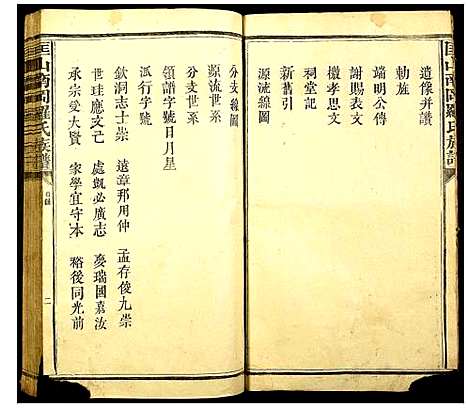 匡山南岡羅氏族譜
遺像并讚
勅旌
端明公傳
謝賜表文
櫬孝思文
祠堂記
新舊引
源流線圖
分支線圖
源流世系
分支世系
領譜字號日月星
派行字號
欽洞志士崇 遠章那用仲 孟存俊九崇
世珪應文志 處凱必廣志 夢瑞國嘉汝
承宗愛大賢 家學宜守本 裕後同光前
匡山南岡羅氏族譜
目錄
二